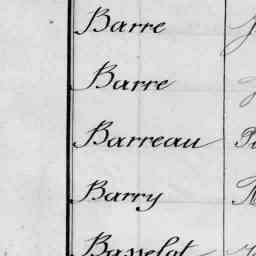 Barre
Barre
Barreau
Barry
Basselot